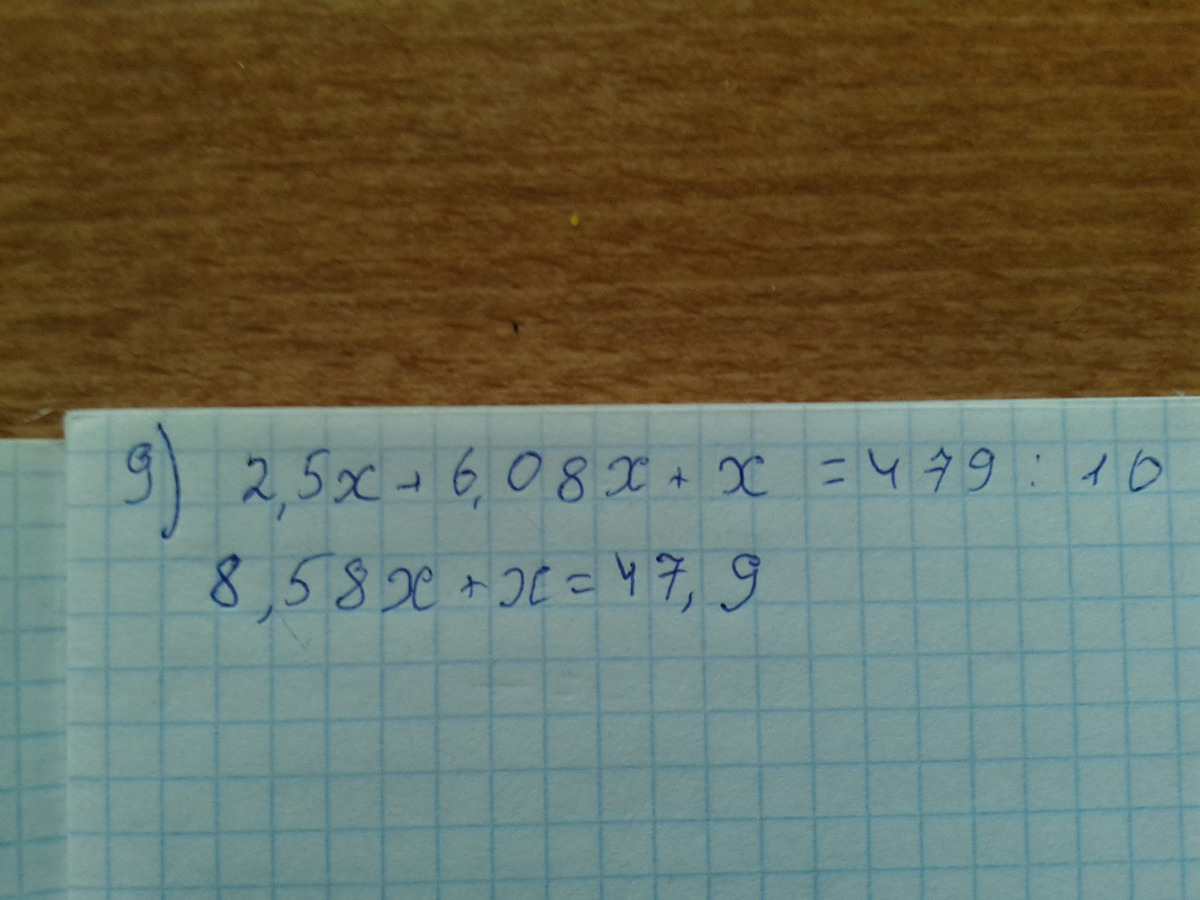 9) 2,5x + 6,08x + x = 479 : 10
8,58x + x = 47,9